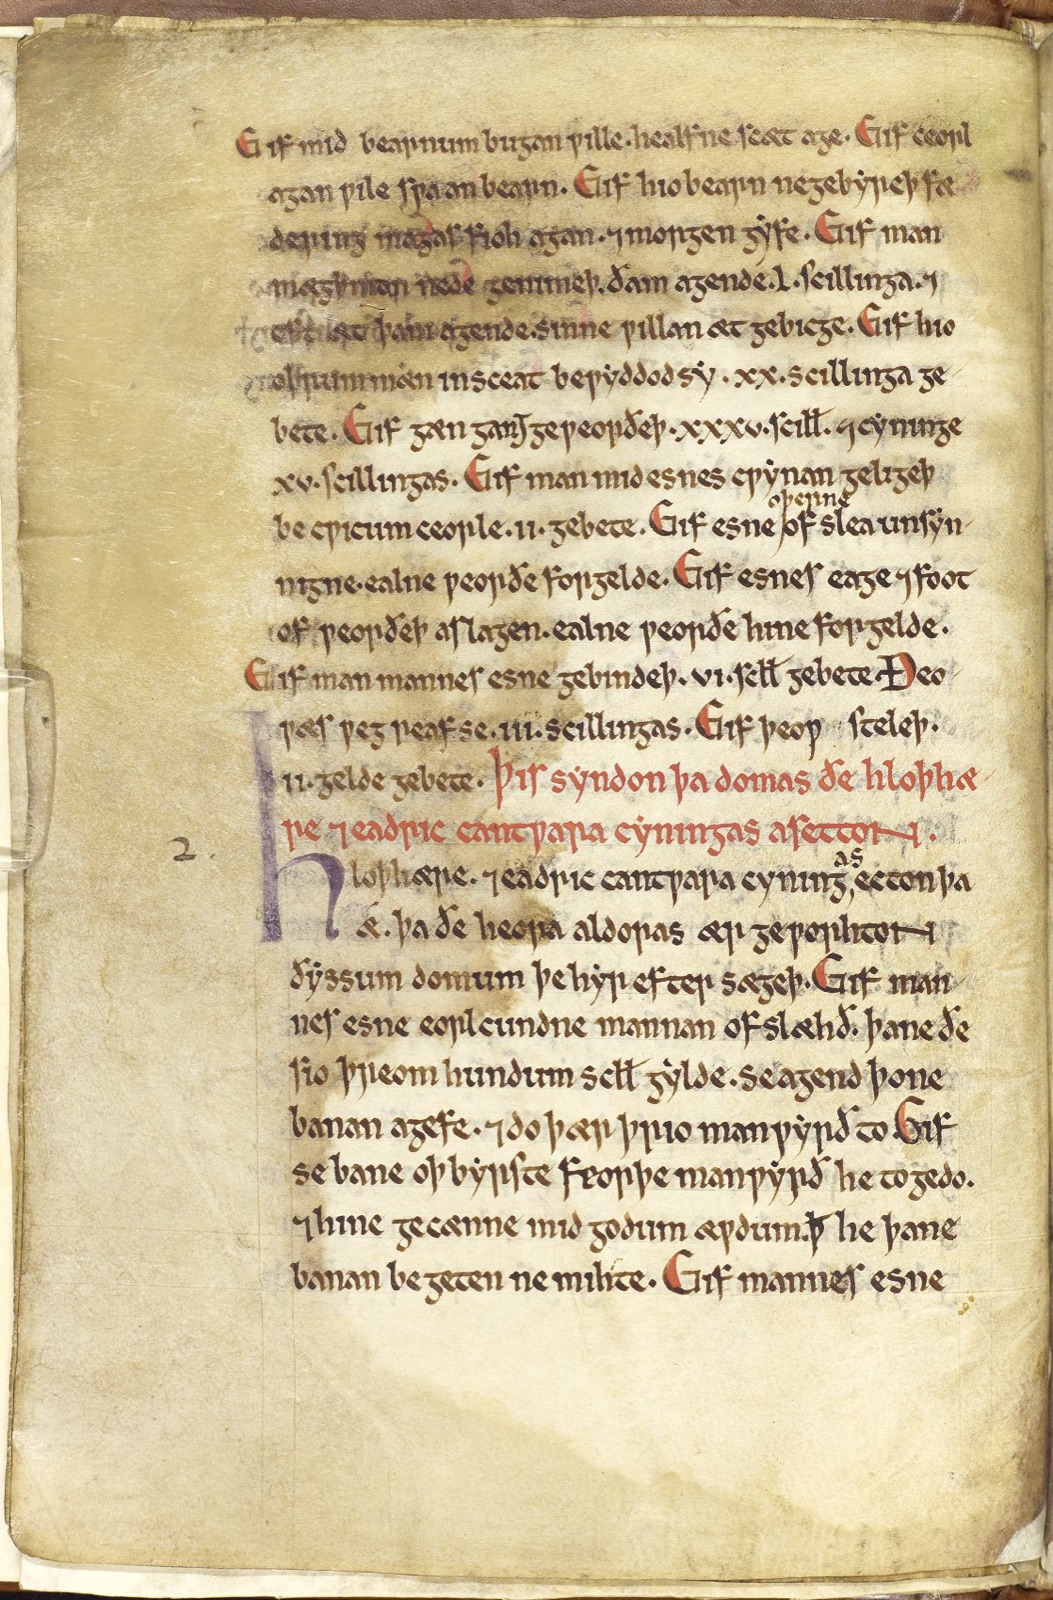 Gif mid bearnum bugan ƿille. healfne scæt age. Gif ceorl
agan ƿile sƿa an bearn. Gif hio bearn ne gebyreþ fæ
dering magas fioh agan. ⁊ morgen gyfe. Gif man
mægþmon nede genimeþ. ðam agende. L. scillinga. ⁊
eft æt þam agende sinne ƿillan æt gebicge. Gif hio
oþrum mæn in sceat beƿyddod sy. xx. scillinga ge
bete. Gif gængang geƿeorðeþ. xxxv. scill. ⁊ cyninge
xv. scillingas. Gif man mid esnes cƿynan geligeþ
be cƿicum ceorle. ii. gebete. Gif esne oþerne of slea unsyn
nigne. ealne ƿeorðe forgelde. Gif esnes eage ⁊ foot
of ƿeorðeþ aslagen. ealne ƿeorðe hine forgelde.
Gif man mannes esne gebindeþ. vi. scll gebete. Ðeo
ƿæs ƿeg reaf se. iii. scillingas. Gif þeoƿ steleþ.
ii. gelde gebete. Þis syndon þa domas ðe hloþhæ
re ⁊ eadric cantƿara cyningas asetton.
2.
hloþhære. ⁊ eadric cantƿara cyningas ecton þa
æ. þa ðe heora aldoras ær geƿorhton
ðyssum domum þe hyr efter sægeþ. Gif man
nes esne eorlcundne mannan ofslæhð. þane ðe
sio þreom hundum scll gylde. se agend þone
banan agefe. ⁊ do þær þrio manƿyrð to. Gif
se bane oþbyrste feorþe manƿyrð he to gedo.
⁊ hine gecænne mid godum æƿdum. ꝥ he þane
banan begeten ne mihte. Gif mannes esne